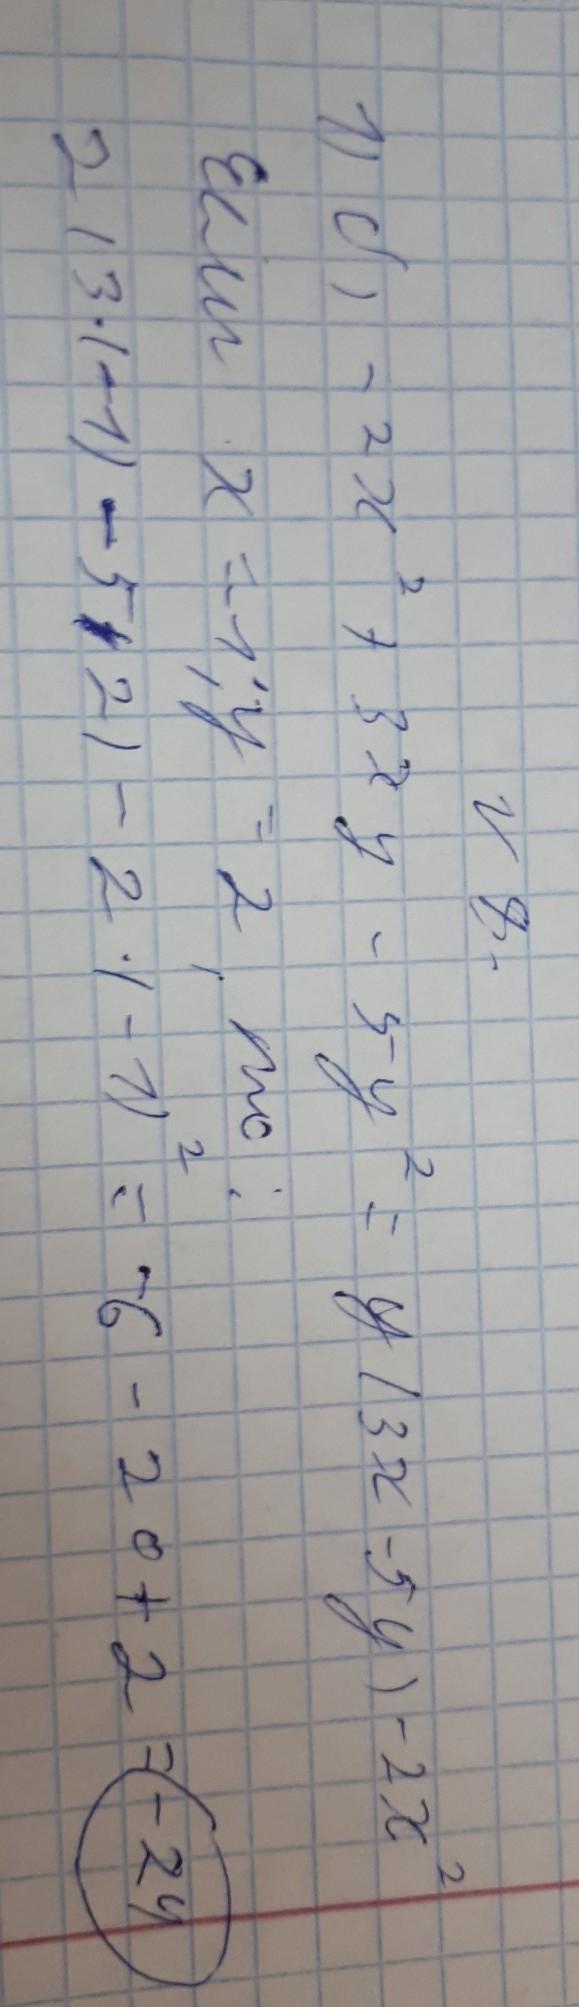 № 8.
1) б) -2x² + 3xy - 5y² = y(3x - 5y) - 2x²
Если x = -1; y = 2, то:
2(3·(-1) - 5·2) - 2·(-1)² = -6 - 20 + 2 = -24